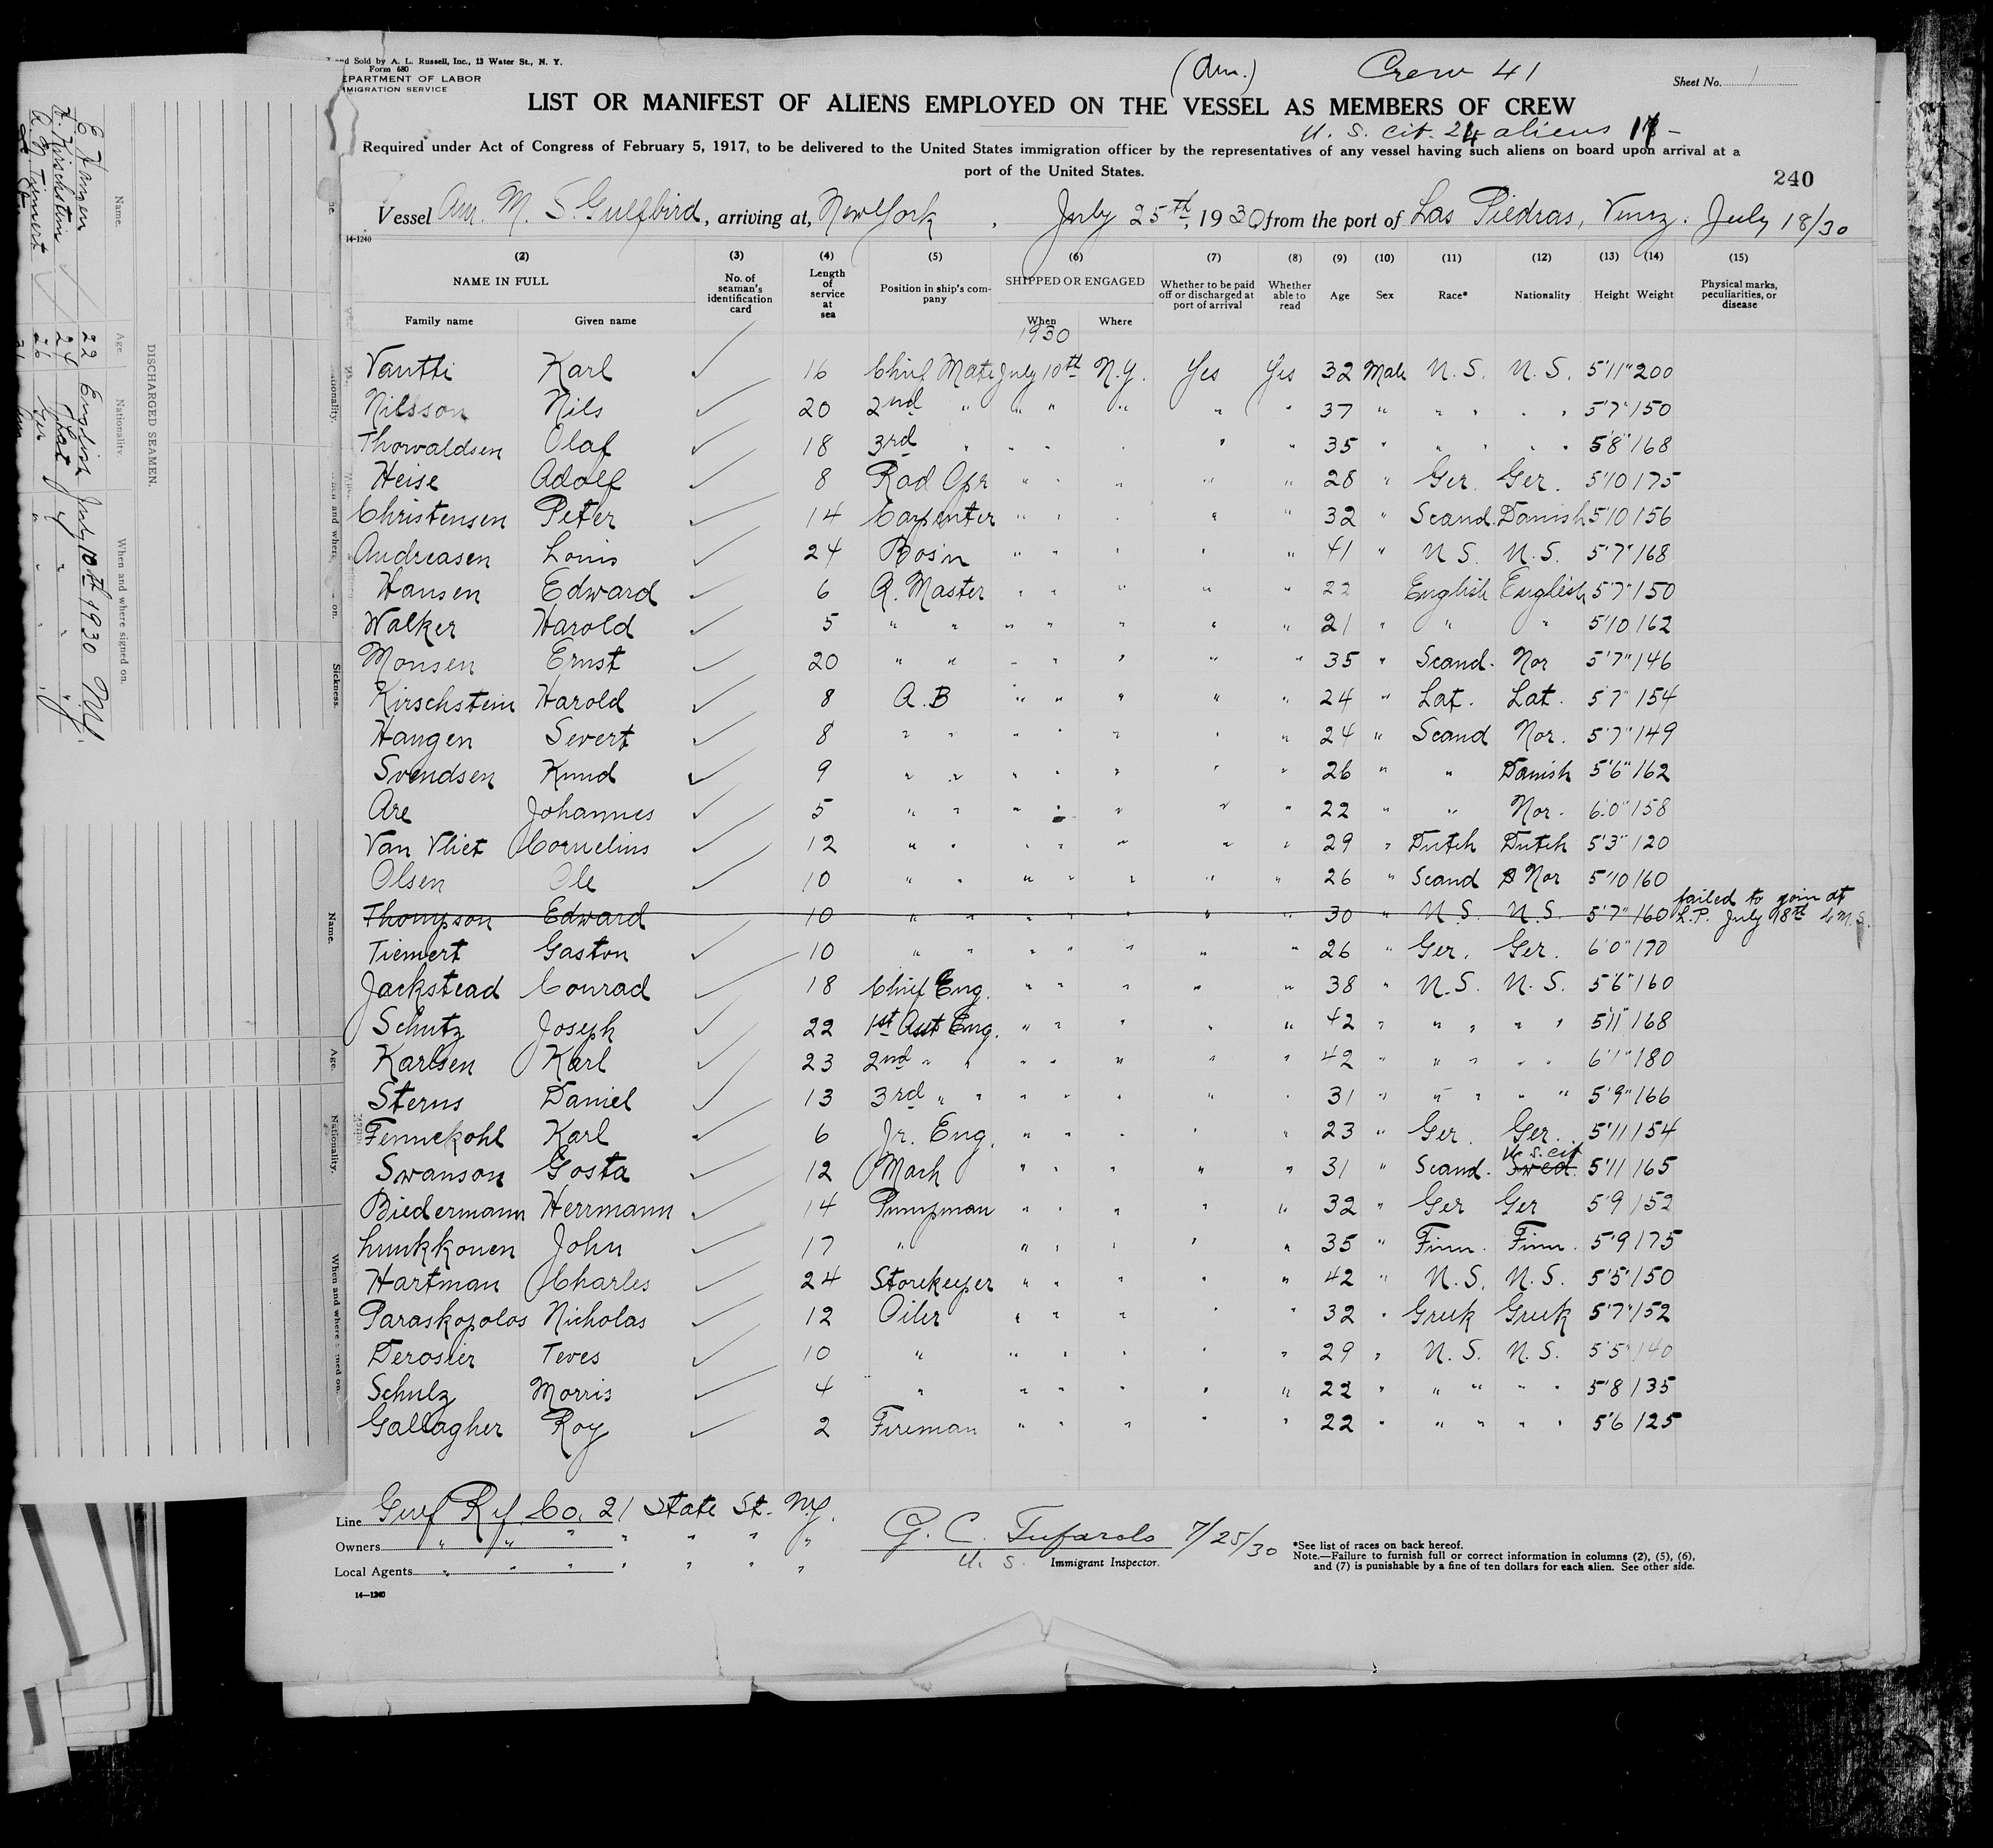 and Sold by A. L. Russell, Inc., 13 Water St., N. Y.
Form 680
EPARTMENT OF LABOR
MIGRATION SERVICE
(Am.) Crew 41
Sheet No. 1
LIST OR MANIFEST OF ALIENS EMPLOYED ON THE VESSEL AS MEMBERS OF CREW
U. S. cit. 24 aliens 17 -
Required under Act of Congress of February 5, 1917, to be delivered to the United States immigration officer by the representatives of any vessel having such aliens on board upon arrival at a
port of the United States.
240
Vessel Am. M. S. Gulfbird, arriving at, New York, July 25th, 1930, from the port of Las Piedras, Venez. July 18/30
14-1240
(2) (3) (4) (5) (6) (7) (8) (9) (10) (11) (12) (13) (14) (15)
NAME IN FULL No. of seaman's identification card Length of service at sea Position in ship's company SHIPPED OR ENGAGED Whether to be paid off or discharged at port of arrival Whether able to read Age Sex Race* Nationality Height Weight Physical marks, peculiarities, or disease
Family name Given name When Where
1930
Vantti Karl ✓ 16 Chief Mate July 10th N.Y. Yes Yes 32 Male U.S. U.S. 5'11" 200
Nilsson Nils ✓ 20 2nd " " " " " " 37 " " " " " 5'7" 150
Thorvaldsen Olaf ✓ 18 3rd " " " " " " 35 " " " " " 5'8" 168
Heise Adolf ✓ 8 Rad Opr " " " " " 28 " Ger. Ger. 5'10 175
Christensen Peter ✓ 14 Carpenter " " " " " 32 " Scand. Danish 5'10 156
Andreasen Louis ✓ 24 Bos'n " " " " " 41 " U.S. U.S. 5'7" 168
Hansen Edward ✓ 6 Q. Master " " " " " 22 English English 5'7" 150
Walker Harold ✓ 5 " " " " " " " 21 " " " 5'10 162
Monsen Ernst ✓ 20 " " " " " " " 35 " Scand. Nor 5'7" 146
Kirschstein Harold ✓ 8 A.B " " " " " 24 " Lat. Lat. 5'7" 154
Haugen Severt ✓ 8 " " " " " " " 24 " Scand Nor. 5'7" 149
Svendsen Knud ✓ 9 " " " " " " " 26 " " Danish 5'6" 162
Are Johannes ✓ 5 " " " " " " " 22 " " Nor. 6'0" 158
Van Vliet Cornelius ✓ 12 " " " " " " " 29 " Dutch Dutch 5'3" 120
Olsen Ole ✓ 10 " " " " " " " 26 " Scand Nor 5'10 160
Thompson Edward 10 " " " " " " " 30 " U.S. U.S. 5'7" 160 failed to join at L.P. July 18th
Tiemert Gaston ✓ 10 " " " " " " " 26 " Ger. Ger. 6'0" 170
Jackstead Conrad ✓ 18 Chief Eng. " " " " " 38 " U.S. U.S. 5'6" 160
Schutz Joseph ✓ 22 1st Asst Eng. " " " " " 42 " " " " " 5'11" 168
Karlsen Karl ✓ 23 2nd " " " " " " " 42 " " " " " 6'1" 180
Sterns Daniel ✓ 13 3rd " " " " " " " 31 " " " " " 5'9" 166
Fennekohl Karl ✓ 6 Jr. Eng. " " " " " 23 " Ger. Ger. 5'11 154
Swanson Gosta ✓ 12 Mach " " " " " 31 " Scand. Swed. U.S. cit 5'11 165
Biedermann Herrmann ✓ 14 Pumpman " " " " " 32 " Ger Ger 5'9 152
Lunkkonen John ✓ 17 " " " " " " 35 " Finn. Finn. 5'9 175
Hartman Charles ✓ 24 Storekeeper " " " " " 42 " U.S. U.S. 5'5" 150
Paraskopolos Nicholas ✓ 12 Oiler " " " " " 32 " Greek Greek 5'7" 152
Derosier Teves ✓ 10 " " " " " " 29 " U.S. U.S. 5'5" 140
Schulz Morris ✓ 4 " " " " " " 22 " " " " " 5'8 135
Gallagher Roy ✓ 2 Fireman " " " " " 22 " " " " " 5'6 125
Line Gulf Ref. Co. 21 State St. N.Y.
Owners " " " " " " "
Local Agents " " " " " " "
G. C. Tufarolo 7/25/30
U. S. Immigrant Inspector.
*See list of races on back hereof.
Note.—Failure to furnish full or correct information in columns (2), (5), (6),
and (7) is punishable by a fine of ten dollars for each alien. See other side.
14—1240
DISCHARGED SEAMEN.
Name. Age. Nationality. When and where signed on. Sickness.
E Hansen 22 English July 10th 1930 NY
H. Kirschstein 24 Lat " " "
G Tiemert 26 Ger " " "
Name. Age. Nationality. When and where signed on.